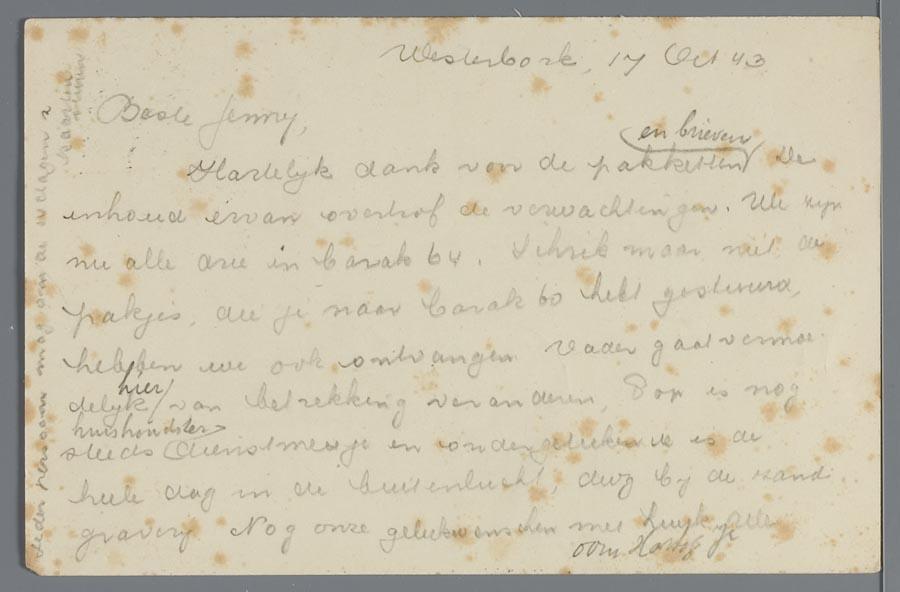 Westerbork, 17 Oct 43
Beste Jenny,
en brieven
Hartelijk dank voor de pakketten/ De
inhoud ervan overtrof de verwachtingen. We zijn
nu alle drie in barak 64. Schrik maar niet de
pakjes, die je naar barak 60 hebt gestuurd,
hebben we ook ontvangen. Vader gaat vermoe-
hier
delijk / van betrekking veranderen, Pop is nog
huishoudster
steeds (dienstmeisje en ondergetekende is de
hele dag in de buitenlucht, dwz bij de zand
graverij Nog onze gelukwenschen met
oom
Ieder persoon mag om de 14 dagen 2
kaarten